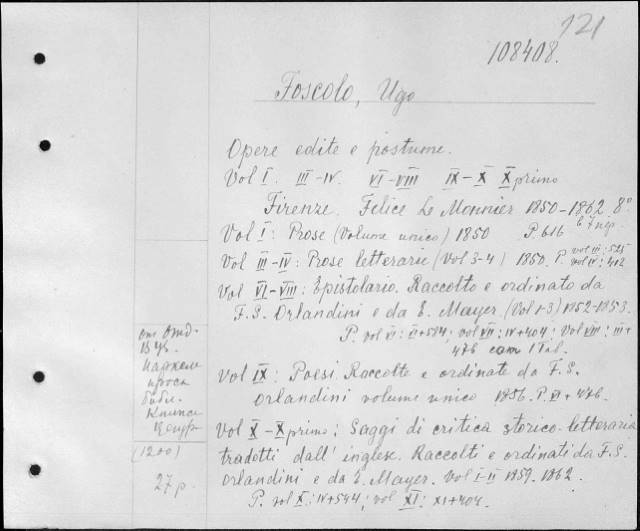 121
108408.
Foscolo, Ugo
Opere edite e postume.
Vol I. III-IV. VI-VIII IX-X X primo
Firenze. Felice Le Monnier 1850-1862 8°
Vol I: Prose (Volume unico) 1850 P. 616
Vol III-IV: Prose letterarie (Vol 3-4) 1850. P. vol III: 525 vol IV: 402
Vol VI-VIII: Epistolario. Raccolto e ordinato da
F.S. Orlandini e da E. Mayer. (Vol 1-3) 1852-1853.
P. vol VI: II+514; vol VII: IV+404; Vol VIII: III+
476 com 1 Tab.
Vol IX: Poesi. Raccolte e ordinate da F.S.
Orlandini volume unico 1856. P. XI + 476.
Vol X-X primo: Saggi di critica storico-letteraria
tradotti dall' inglese. Raccolti e ordinati da F.S.
Orlandini e da E. Mayer. Vol I-II 1859. 1862.
P. vol X: IV+544; vol XI: XI+404.
от Отд.
библ.
(1200)
27 р.